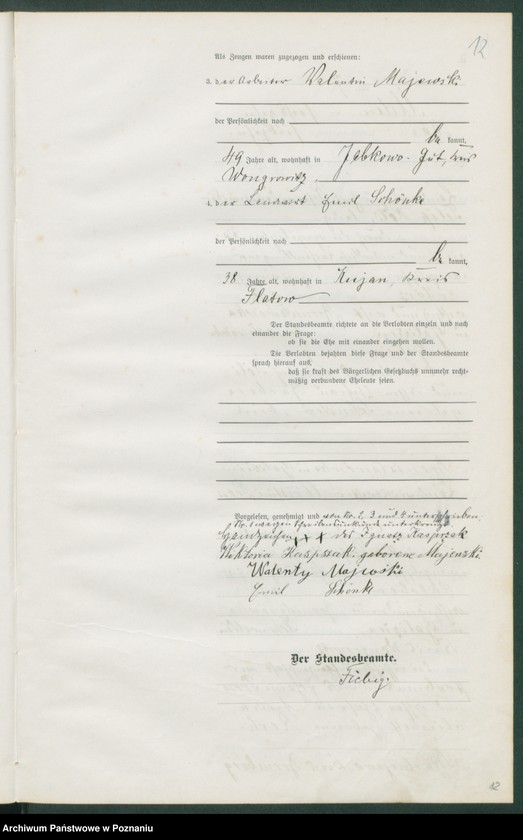 12
Als Zeugen waren zugezogen und erschienen:
3. der Arbeiter Valentin Majewski
der Persönlichkeit nach
be kannt,
49 Jahre alt, wohnhaft in Jabkowo-Gut, Kreis
Wongrowitz
4. der Landwirt Emil Schönke
der Persönlichkeit nach
be kannt,
38 Jahre alt, wohnhaft in Kujan, Kreis
Flatow
Der Standesbeamte richtete an die Verlobten einzeln und nach
einander die Frage:
ob sie die Ehe mit einander eingehen wollen.
Die Verlobten bejahten diese Frage und der Standesbeamte
sprach hierauf aus,
daß sie kraft des Bürgerlichen Gesetzbuchs nunmehr recht-
mäßig verbundene Eheleute seien.
Vorgelesen, genehmigt und von Nr. 2, 3 und 4 unterschrieben.
Nr. 1 wegen Schreibensunkunde
Handzeichen +++ des Ignatz Kasprzak
Wiktoria geborene Majewski
Walenty Majewski
Emil Schönke
Der Standesbeamte.
Fiebig.
12
Archiwum Państwowe w Poznaniu